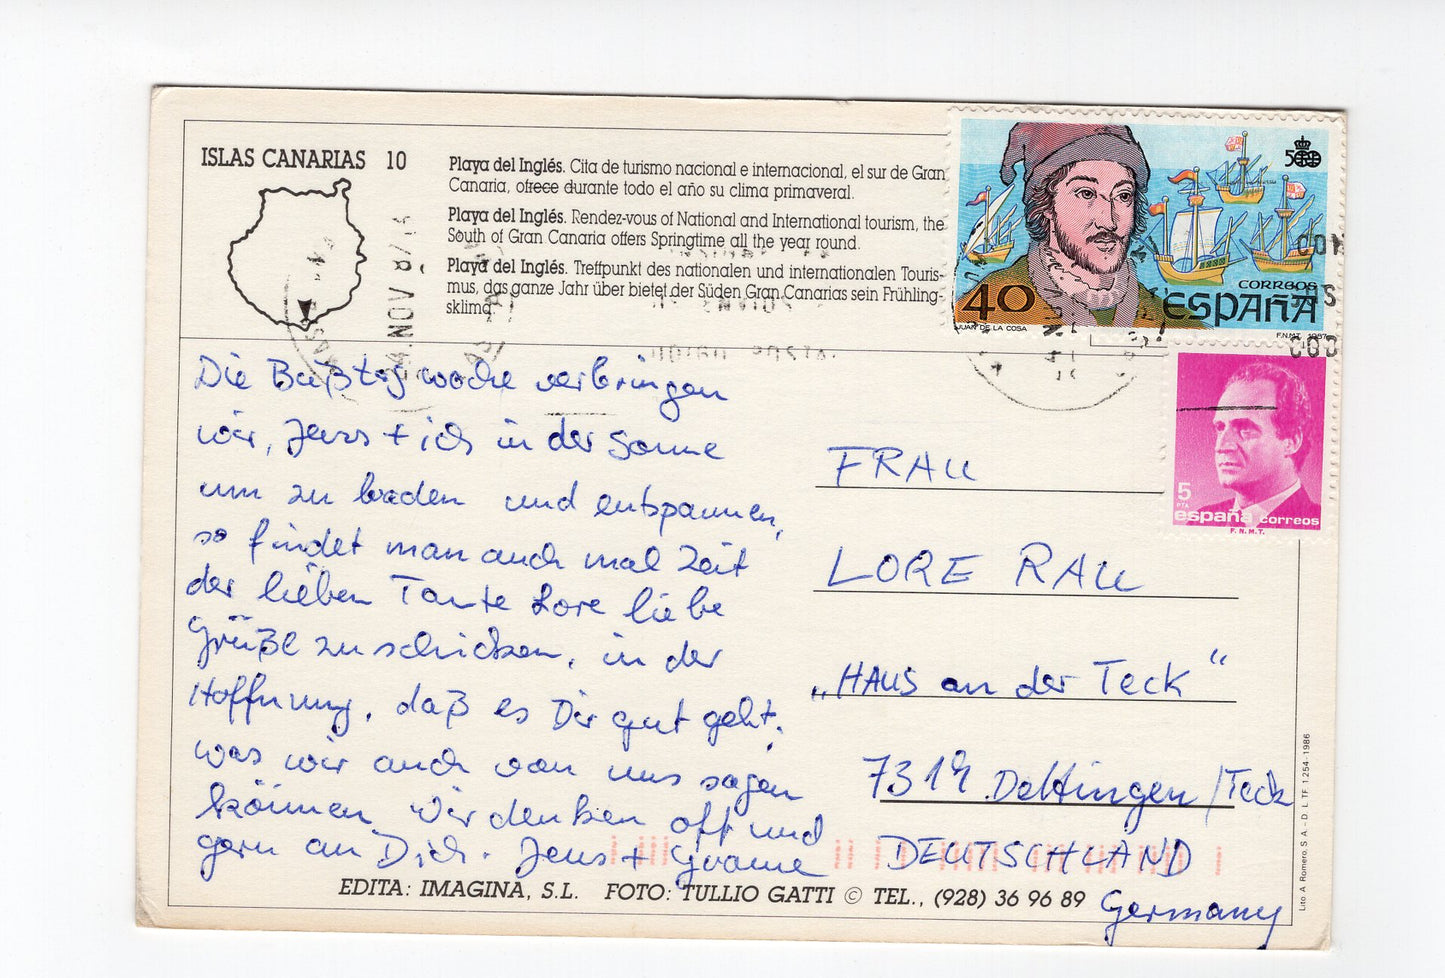 ISLAS CANARIAS 10
Playa del Inglés. Cita de turismo nacional e internacional, el sur de Gran
Canaria, ofrece durante todo el año su clima primaveral.
Playa del Inglés. Rendez-vous of National and International tourism, the
South of Gran Canaria offers Springtime all the year round.
Playa del Inglés. Treffpunkt des nationalen und internationalen Touris-
mus, das ganze Jahr über bietet der Süden Gran Canarias sein Frühling-
sklima.
500
40
CORREOS
ESPAÑA
JUAN DE LA COSA
F.N.M.T. 1987
NOV 87
5
PTA
españa correos
F.N.M.T.
Die Bußtagwoche verbringen
wir, Jens + ich in der Sonne
um zu baden und entspannen,
so findet man auch mal Zeit
der lieben Tante Lore liebe
Grüße zu schicken, in der
Hoffnung, daß es Dir gut geht,
was wir auch von uns sagen
können. Wir denken oft und
gern an Dich. Jens + Yvonne
FRAU
LORE RAU
„HAUS an der Teck“
7319 Dettingen/Teck
DEUTSCHLAND
Germany
EDITA: IMAGINA, S.L. FOTO: TULLIO GATTI © TEL., (928) 36 96 89
Lito A. Romero, S. A. - D. L. TF. 1.254-1986